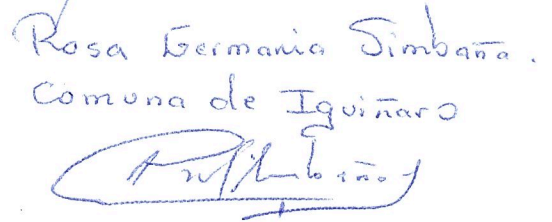 Rosa Germania Simbaña.
Comuna de Iguiñaro